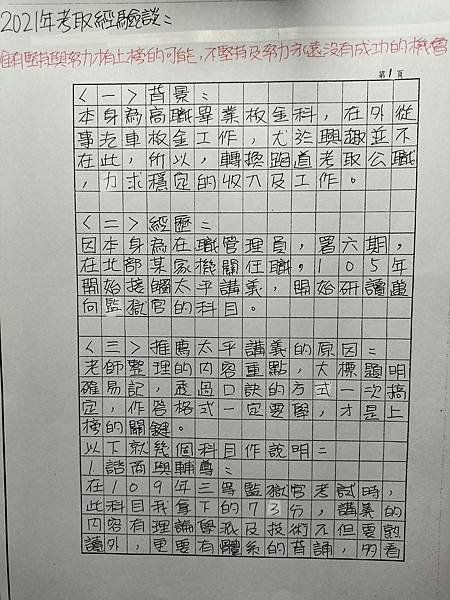 2021年考取經驗談：
唯有堅持與努力才有上榜的可能，不堅持及努力永遠沒有成功的機會
第1頁
＜一＞背景：
本身為高職畢業板金科，在外從
事汽車板金工作，尤於興趣並不
在此，所以，轉換跑道考取公職
，力求穩定的收入及工作。
＜二＞經歷：
因本身為在職管理員，署六期，
在北部某家機關任職，105年
開始接觸太平講義，開始研讀邁
向監獄官的科目。
＜三＞推薦太平講義的原因：
老師整理的內容重點，大標題明
確易記，透過口訣的方式一次搞
定，作答格式一定要學，才是上
榜的關鍵。
以下就幾個科目作說明：
1諮商與輔導：
在109年三等監獄官考試時，
此科目我拿下的73分，講義的
內容有理論學派及技術不但要熟
讀外，更要有體系的背誦，多看